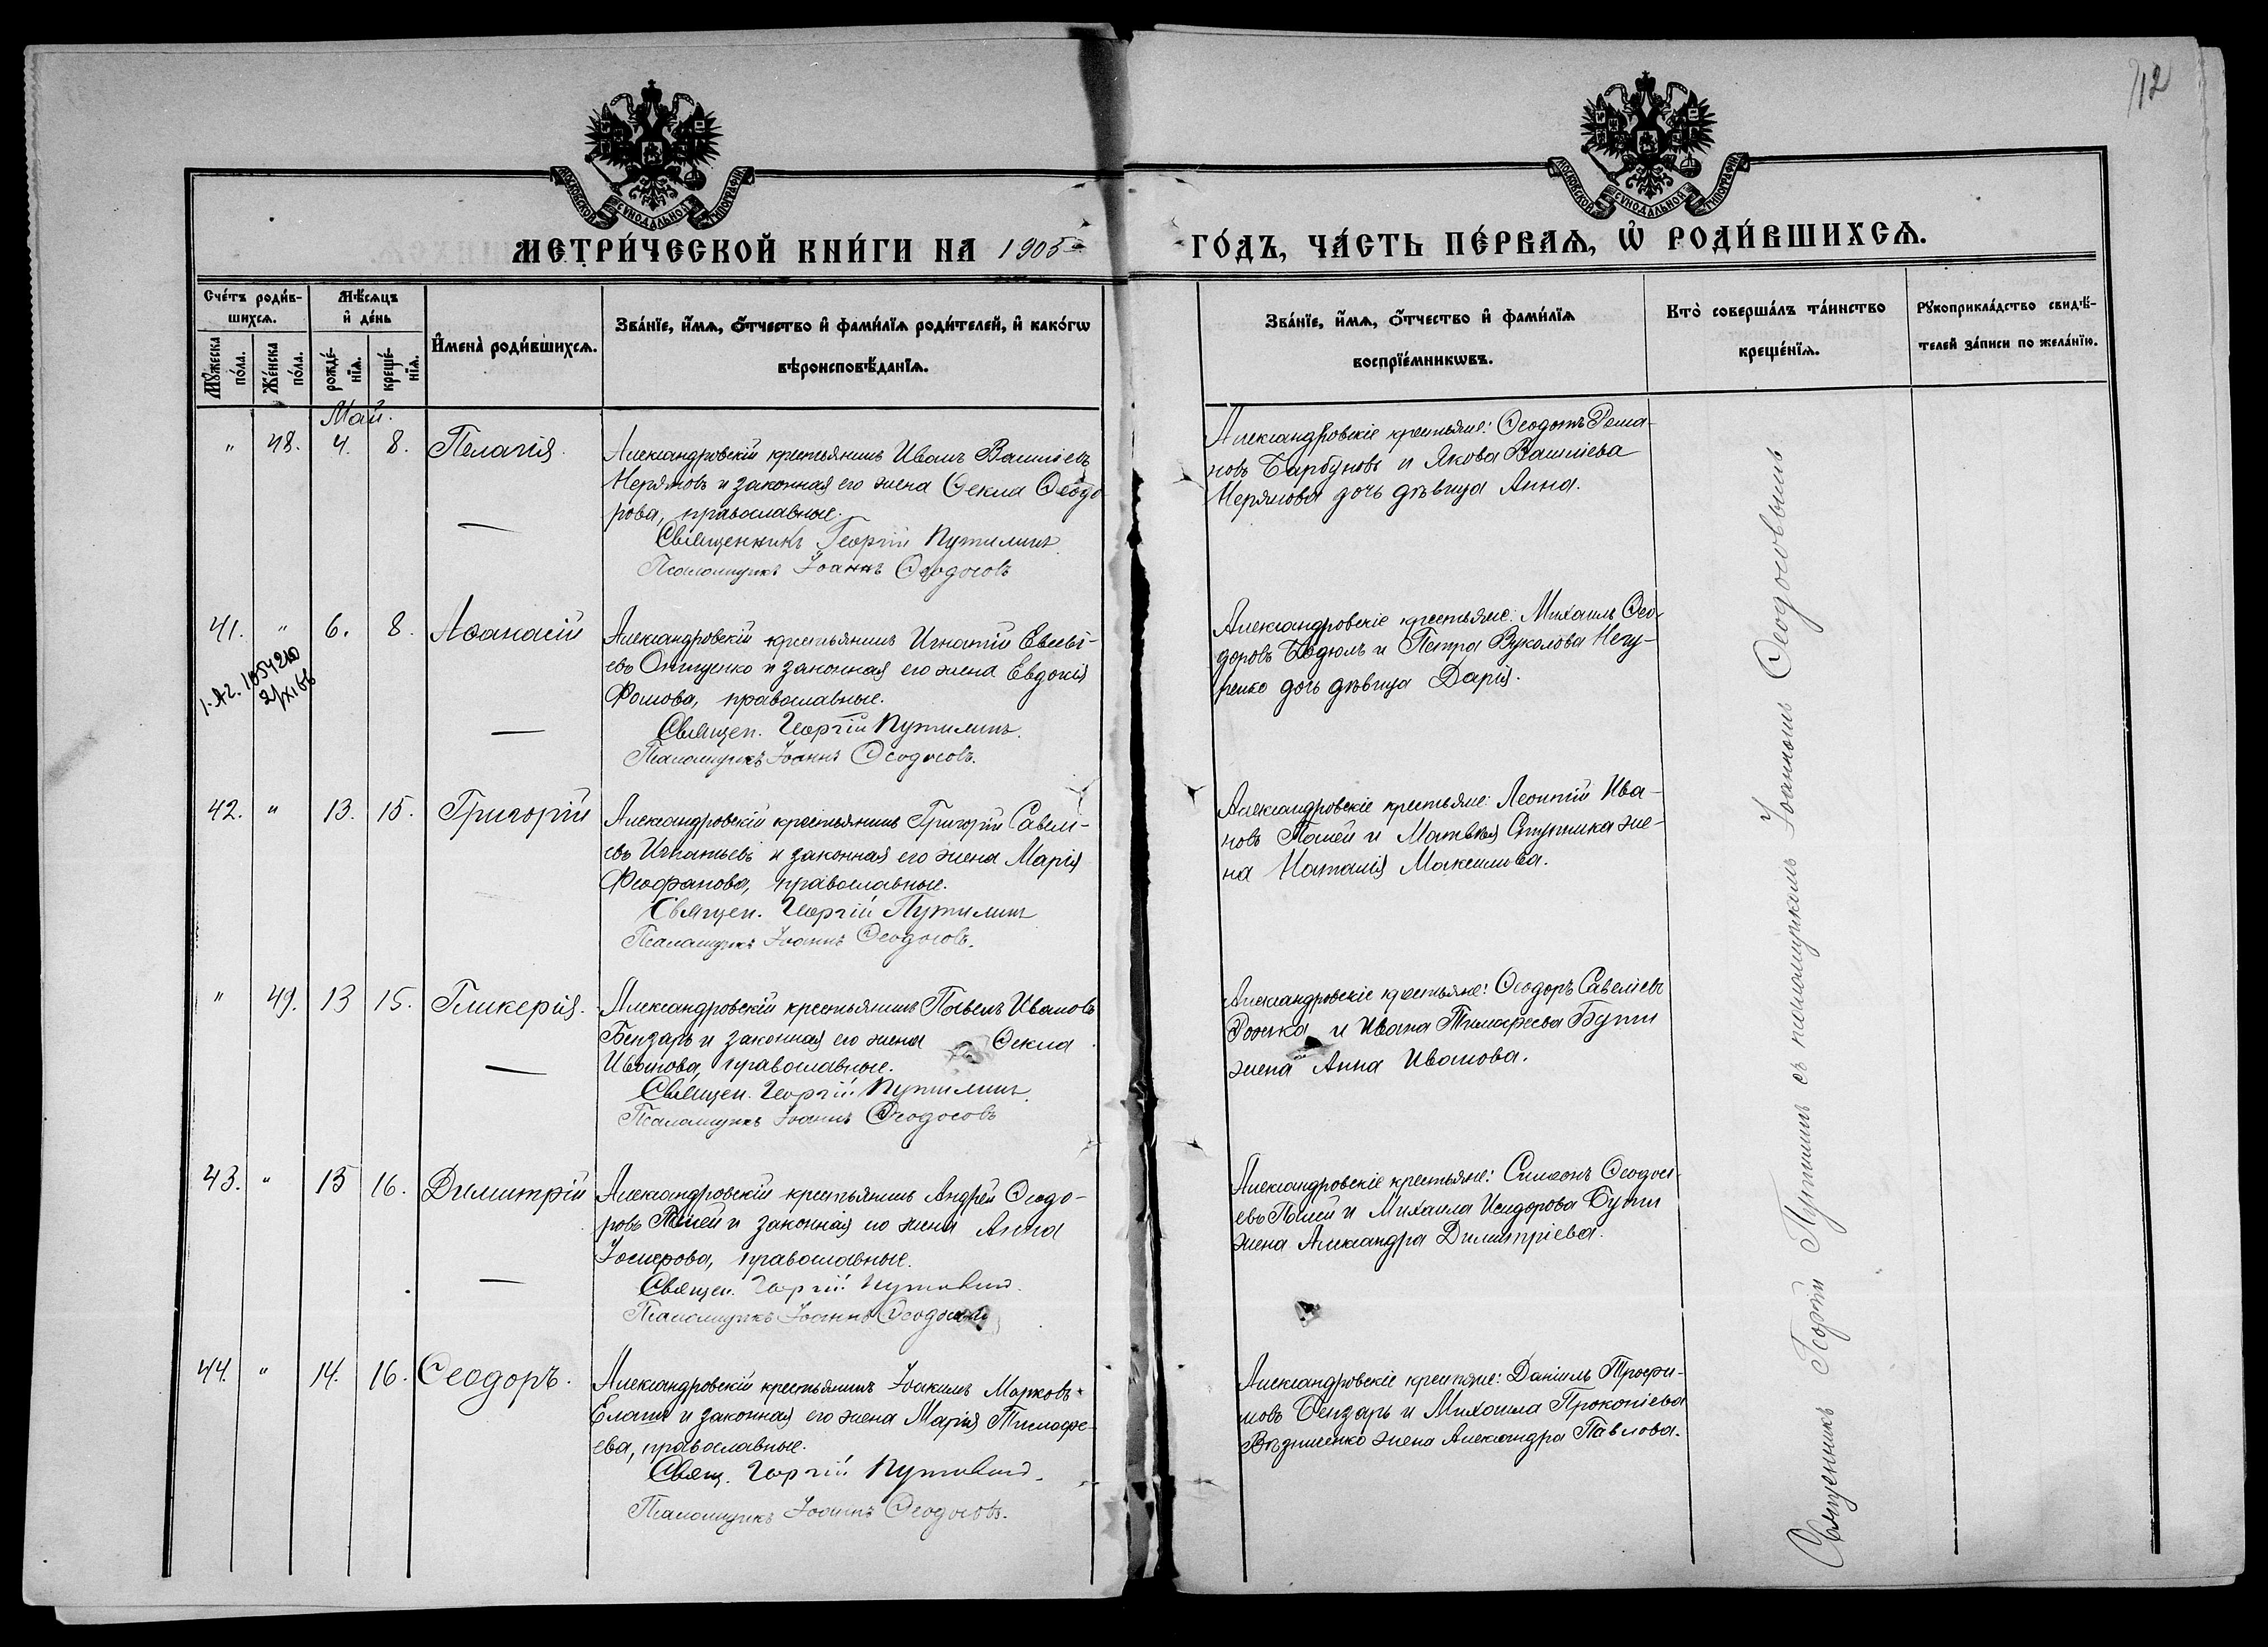 12
МОСКОВСКОЙ СУНОДАЛЬНОЙ ТИПОГРАФІИ
МОСКОВСКОЙ СУНОДАЛЬНОЙ ТИПОГРАФІИ
МЕТРИ́ЧЕСКОЙ КНИ́ГИ НА 1905
ГО́ДЪ, ЧА́СТЬ ПЕ́РВАѦ, Ѽ РОДИ́ВШИХСѦ.
Сче́тъ роди́в-
шихсѧ.
Мꙋ́жеска по́ла.
Же́нска по́ла.
Мѣ́сѧцъ
и҆ де́нь
рожде́-
нїѧ.
креще́-
нїѧ.
И҆мена̀ роди́вшихсѧ.
Зва́нїе, и҆́мѧ, ѻ҆́тчество и҆ фами́лїѧ роди́телей, и҆ како́гѡ
вѣроисповѣ́данїѧ.
Зва́нїе, и҆́мѧ, ѻ҆́тчество и҆ фами́лїѧ
воспрїе́мникѡвъ.
Кто̀ соверша́лъ та́инство
креще́нїѧ.
Рꙋкоприкла́дство свидѣ́-
телей за́писи по жела́нїю.
Май.
" 48. 4. 8. Пелагія.
Александровскій крестьянинъ Иванъ Василіевъ
Мерятовъ и законная его жена Ѳекла Ѳеодо
рова, православные.
Священникъ Георгій Путилинъ
Псаломщикъ Іоаннъ Ѳеодосовъ
Александровскіе крестьяне: Ѳеодотъ Рома-
новъ Барбуновъ и Якова Василіева
Мерятова дочь дѣвица Анна.
41. " 6. 8. Аѳанасій
2/XI 66
Александровскій крестьянинъ Игнатій Евсеві-
евъ Онищенко и законная его жена Евдокія
Фомова, православные.
Священ. Георгій Путилинъ.
Псаломщикъ Іоаннъ Ѳеодосовъ.
Александровскіе крестьяне: Михаилъ Ѳео-
доровъ Бодюлъ и Петра Вуколова Нечу-
ренко дочь дѣвица Дарія.
42. " 13. 15. Григорій
Александровскій крестьянинъ Григорій Савелі-
евъ Игнатьевъ и законная его жена Марія
Феофанова, православные.
Священ. Георгій Путилинъ
Псаломщикъ Іоаннъ Ѳеодосовъ.
Александровскіе крестьяне: Леонтій Ива-
новъ Палей и Матвѣя Ступника же-
на Наталія Максимова.
" 49. 13 15. Гликерія.
Александровскій крестьянинъ Павелъ Ивановъ
Бензарь и законная его жена Ѳекла
Иванова, православные.
Священ. Георгій Путилинъ.
Псаломщикъ Іоаннъ Ѳеодосовъ
Александровскіе крестьяне: Ѳеодоръ Савеліевъ
и Ивана Тимофеева Бути
жена Анна Иванова.
43. " 15 16. Димитрій
Александровскій крестьянинъ Андрей Ѳеодо-
ровъ Палей и законная его жена Анна
православные.
Священ. Георгій Путилинъ.
Псаломщикъ Іоаннъ Ѳеодосовъ
Александровскіе крестьяне: Симеонъ Ѳеодосі-
евъ Палей и Михаила Исидорова Бути
жена Александра Димитріева.
44. " 14. 16. Ѳеодоръ.
Александровскій крестьянинъ Іоакимъ Марковъ
и законная его жена Марія Тимофе-
ева, православные.
Свящ. Георгій Путилинъ.
Псаломщикъ Іоаннъ Ѳеодосовъ.
Александровскіе крестьяне: Даніилъ Трофи-
мовъ Бензарь и Михаила Прокопіева
жена Александра Павлова.
Священникъ Георгій Путилинъ съ псаломщикомъ Іоанномъ Ѳеодосовымъ